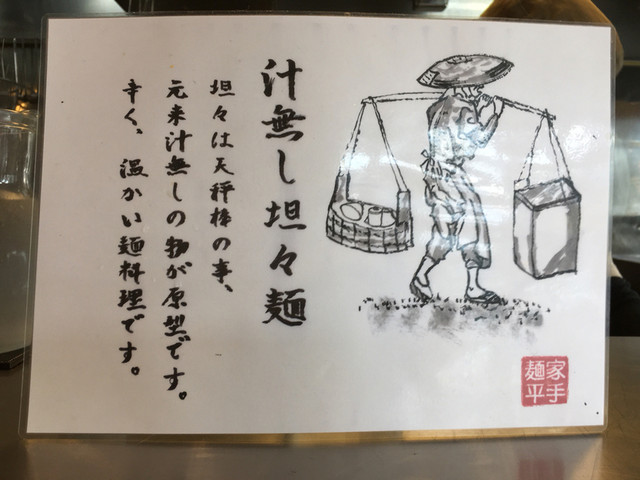 汁無し坦々麺
坦々は天秤棒の事、
元来汁無しの物が原型です。
辛く、温かい麺料理です。
家手
麺平